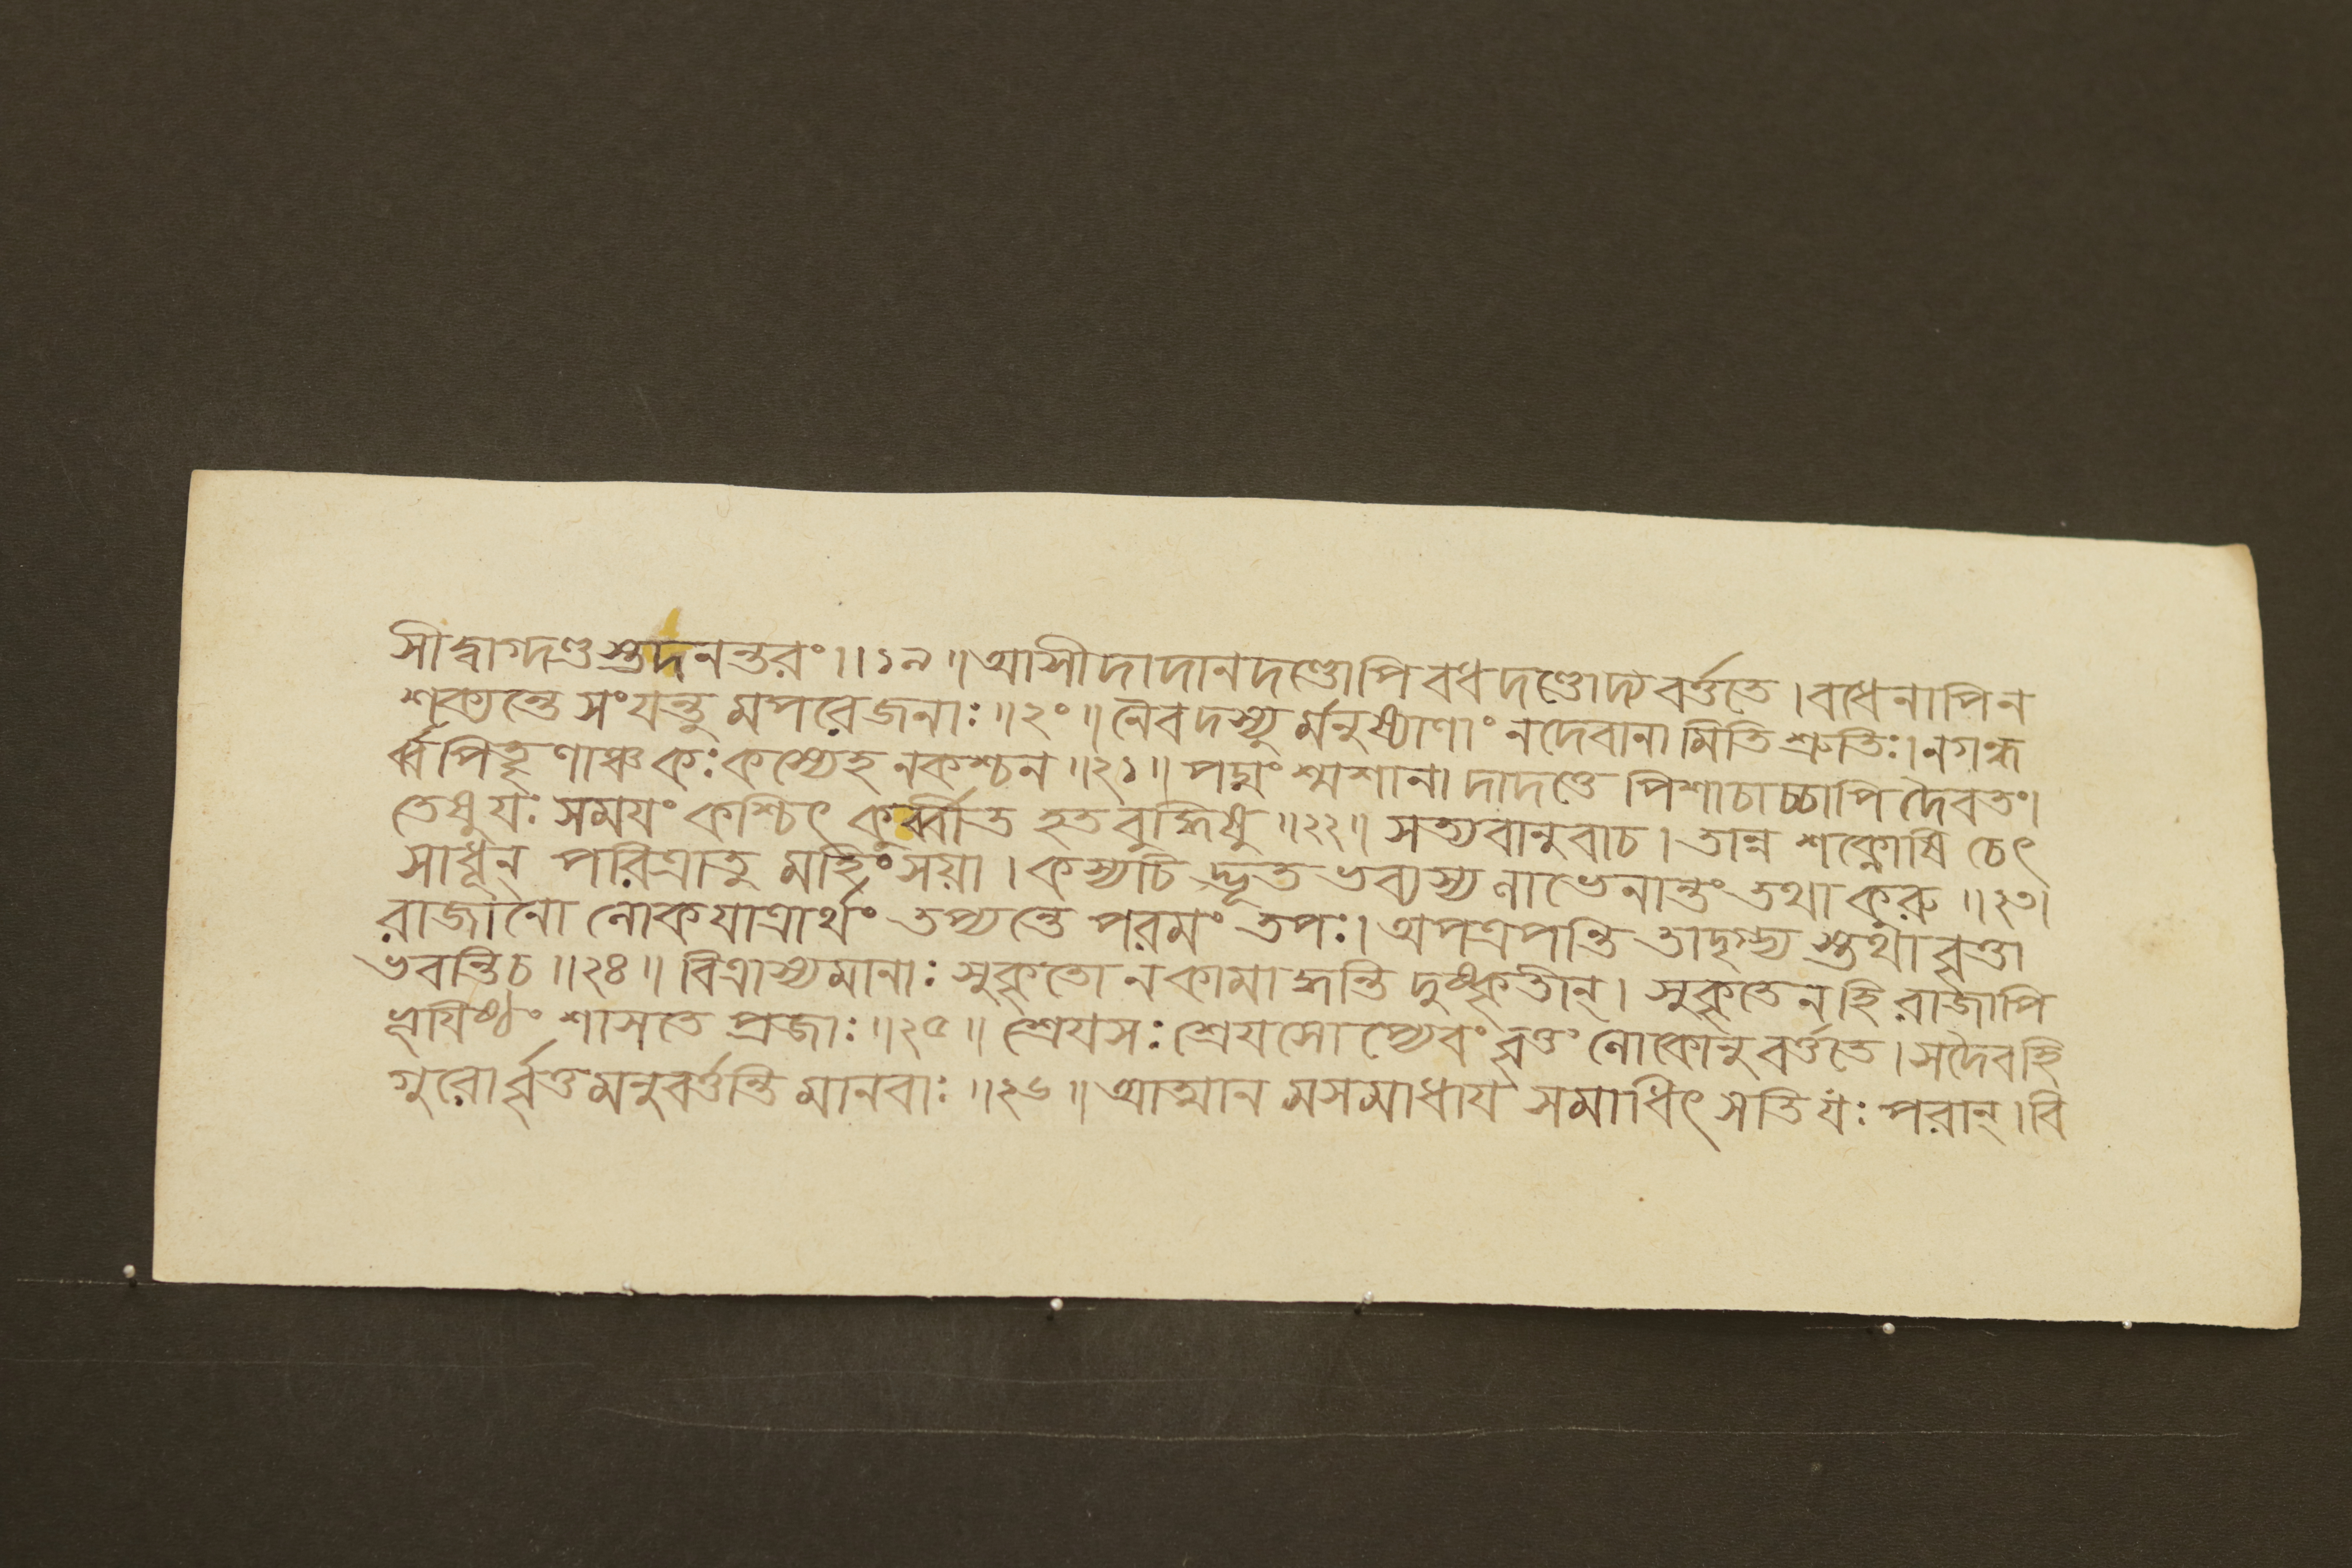 সীদ্বাগ্দণ্ডস্তুদনন্তরং।।১৯॥আসীদাদানদণ্ডোপিবধদণ্ডোদ্য বর্ত্ততে।বধেনাপিন
শক্যন্তে সংযন্তু মপরেজনাঃ॥২০॥নৈবদস্যু র্মনুষ্যাণাং নদেবানা মিতি শ্রুতিঃ।নগন্ধ
র্ব্বপিতৄণাঞ্চ কঃকস্যেহ নকশ্চন॥২১॥পদ্মং শ্মশানা দাদত্তে পিশাচাচ্চাপি দৈবতং।
তেষুযঃ সময়ং কশ্চিৎ কুর্ব্বীত হতবুদ্ধিষু॥২২॥ সত্যবানুবাচ। তান্ন শক্নোষি চেৎ
সাধূন্ পরিত্রাতু মহিংসয়া।কস্যচি দ্ভূত ভব্যস্য লাভেনান্তং তথা কুরু॥২৩।
রাজানো লোকযাত্রার্থং তপ্যন্তে পরমং তপঃ। অপত্রপন্তি তাদৃগ্ভ্য স্তথাবৃত্তা
ভবন্তিচ॥২৪॥ বিত্রাস্যমানাঃ সুকৃতো নকামাদ্ঘ্নন্তি দুষ্কৃতীন্। সুকৃতেনহি রাজাপি
ভূয়িষ্ঠং শাসতে প্রজাঃ॥২৫॥ শ্রেয়সঃ শ্রেয়সোপ্যেবং বৃত্তং লোকোনুবর্ত্ততে।সদৈবহি
গুরোর্বৃত্তমনুবর্ত্তন্তি মানবাঃ॥২৬॥আত্মান মসমাধায় সমাধিৎ সতি যঃ পরান্।বি